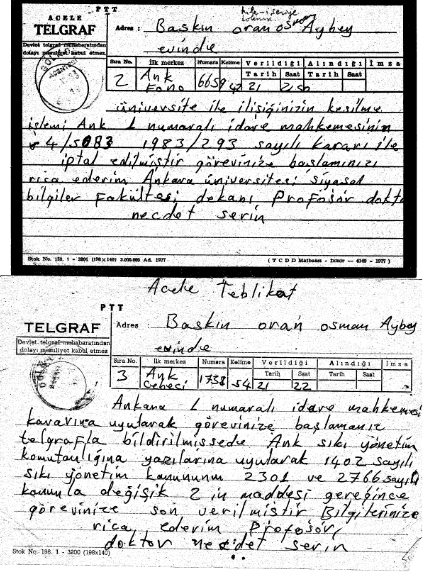 PTT
ACELE
TELGRAF
Devlet telgraf muhaberatından
dolayı mesuliyet kabul etmez.
Adres : Baskın oran osman Aybey
evinde
Sıra No. İlk merkez Numara Kelime Verildiği Alındığı İmza
Tarih Saat Tarih Saat
2 Ank 6659 42 21 2150
üniversite ile ilişiğinizin kesilme
işlemi Ank 1 numaralı idare mahkemesinin
1983/293 sayılı kararı ile
iptal edilmiştir görevinize başlamanızı
rica ederim Ankara üniversitesi siyasal
bilgiler Fakültesi dekanı Profosör doktor
necdet serin
Acele Teblikat
PTT
TELGRAF
Devlet telgraf muhaberatından
dolayı mesuliyet kabul etmez
Adres : Baskın oran osman Aybey
evinde
Sıra No. İlk merkez Numara Kelime Verildiği Alındığı İmza
Tarih Saat Tarih Saat
3 Ank Cebeci 1738 54 21 22
Ankara 1 numaralı idare mahkemesi
kararına uyularak görevinize başlamanız
telgrafla bildirilmissede Ank sıkı yönetim
komutanlığına yazılarına uyularak 1402 sayılı
sıkı yönetim kanununun 2301 ve 2766 sayılı
kanunla değişik 2 in maddesi gereğince
görevinize son verilmiştir Bilgilerinize
rica ederim Profosör
doktor necdet serin
Stok No. 158. 1 - 3200 (198x140)